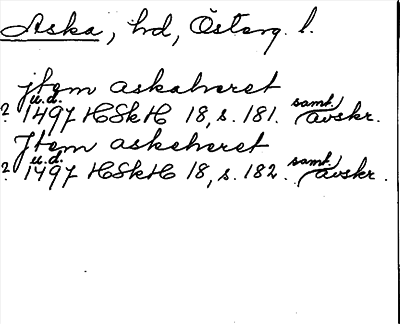 Aska, hd, Österg. l.
jtem askaheret
u.d.
? 1497 HSkH 18, s. 181. samt. avskr.
Jtem askeheret
u.d.
? 1497 HSkH 18, s. 182. samt. avskr.